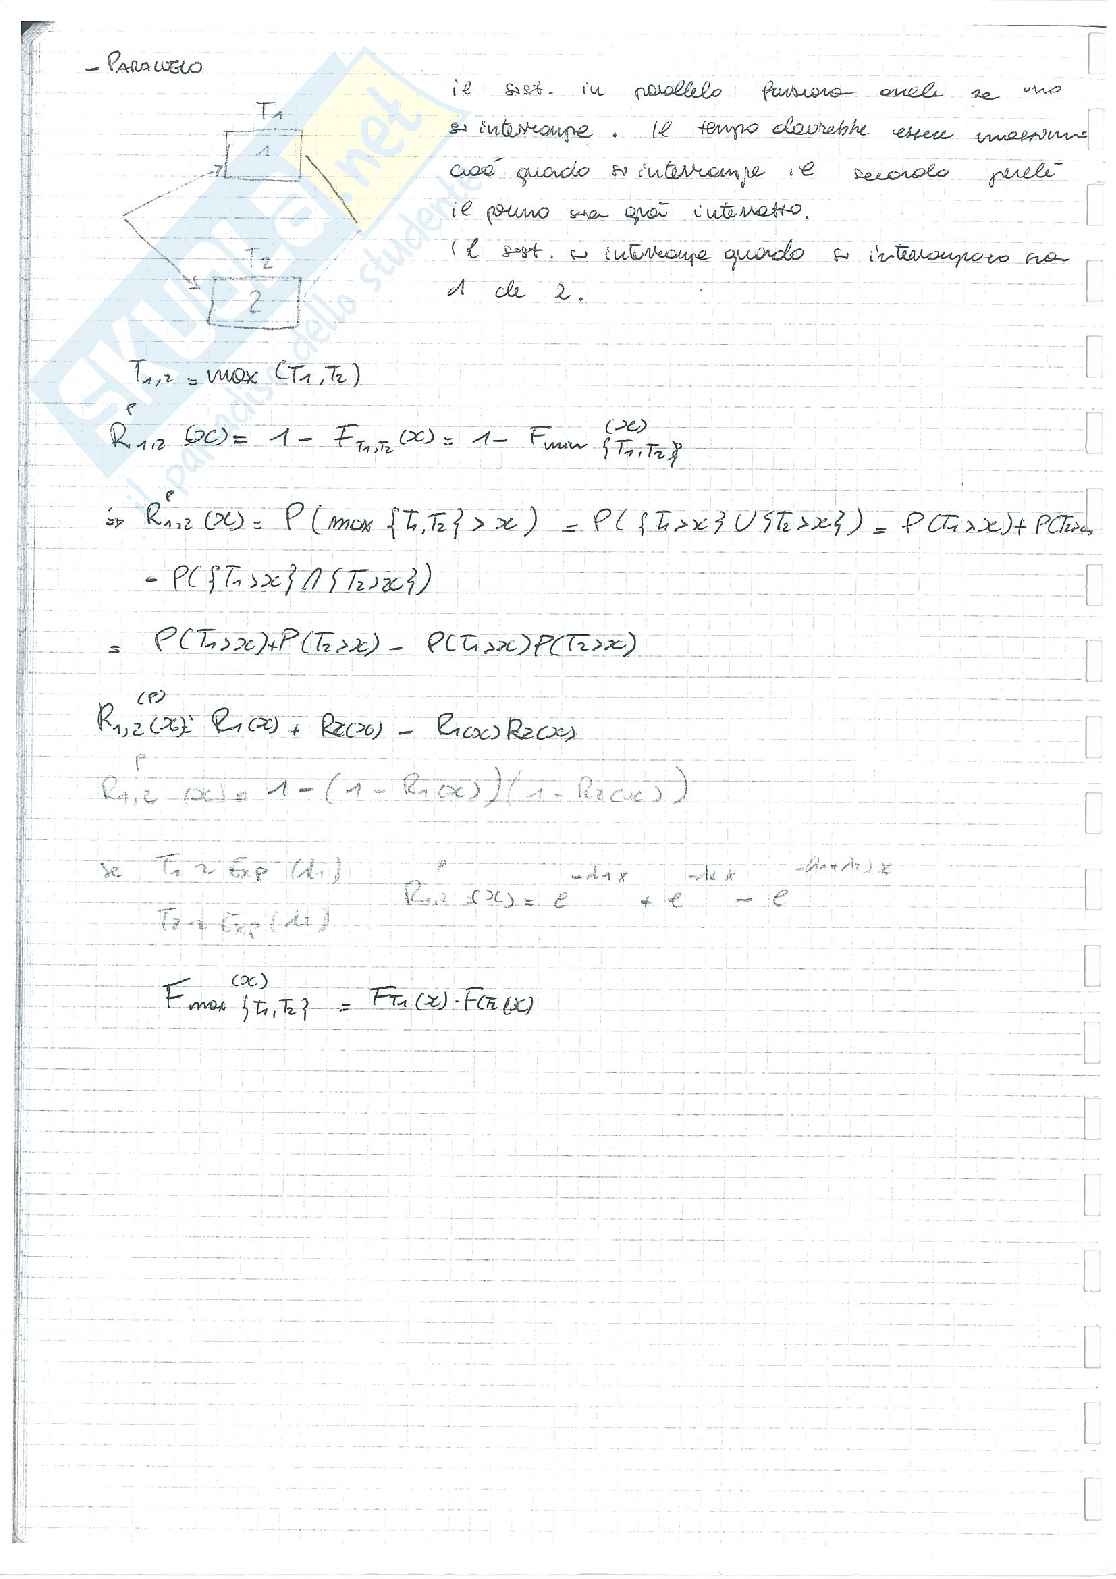 - PARALLELO
T1
1
T2
2
il sist. in parallelo funziona anche se uno
si interrompe. Il tempo dovrebbe essere massimo
cioè quando si interrompe il secondo perché
il primo sia già interrotto.
(il sist. si interrompe quando si interrompono sia
1 che 2.
T1,2 = max (T1,T2)
R^P_1,2 (x) = 1 - F_T1,T2 (x) = 1 - F_min {T1,T2} (x)
R^P_1,2 (x) = P(max {T1,T2} > x) = P({T1>x} ∪ {T2>x}) = P(T1>x) + P(T2>x
- P({T1>x} ∩ {T2>x})
= P(T1>x)+P(T2>x) - P(T1>x)P(T2>x)
R^(P)_1,2 (x) = R1(x) + R2(x) - R1(x)R2(x)
R^P_1,2 (x) = 1 - (1 - R1(x))(1 - R2(x))
se T1 ~ Exp (λ1) R^P_1,2 (x) = e^-λ1x + e^-λ2x - e^-(λ1+λ2)x
T2 ~ Exp (λ2)
F_max {T1,T2} (x) = FT1(x) · FT2(x)
SKUOLA.net
il paradiso dello studente